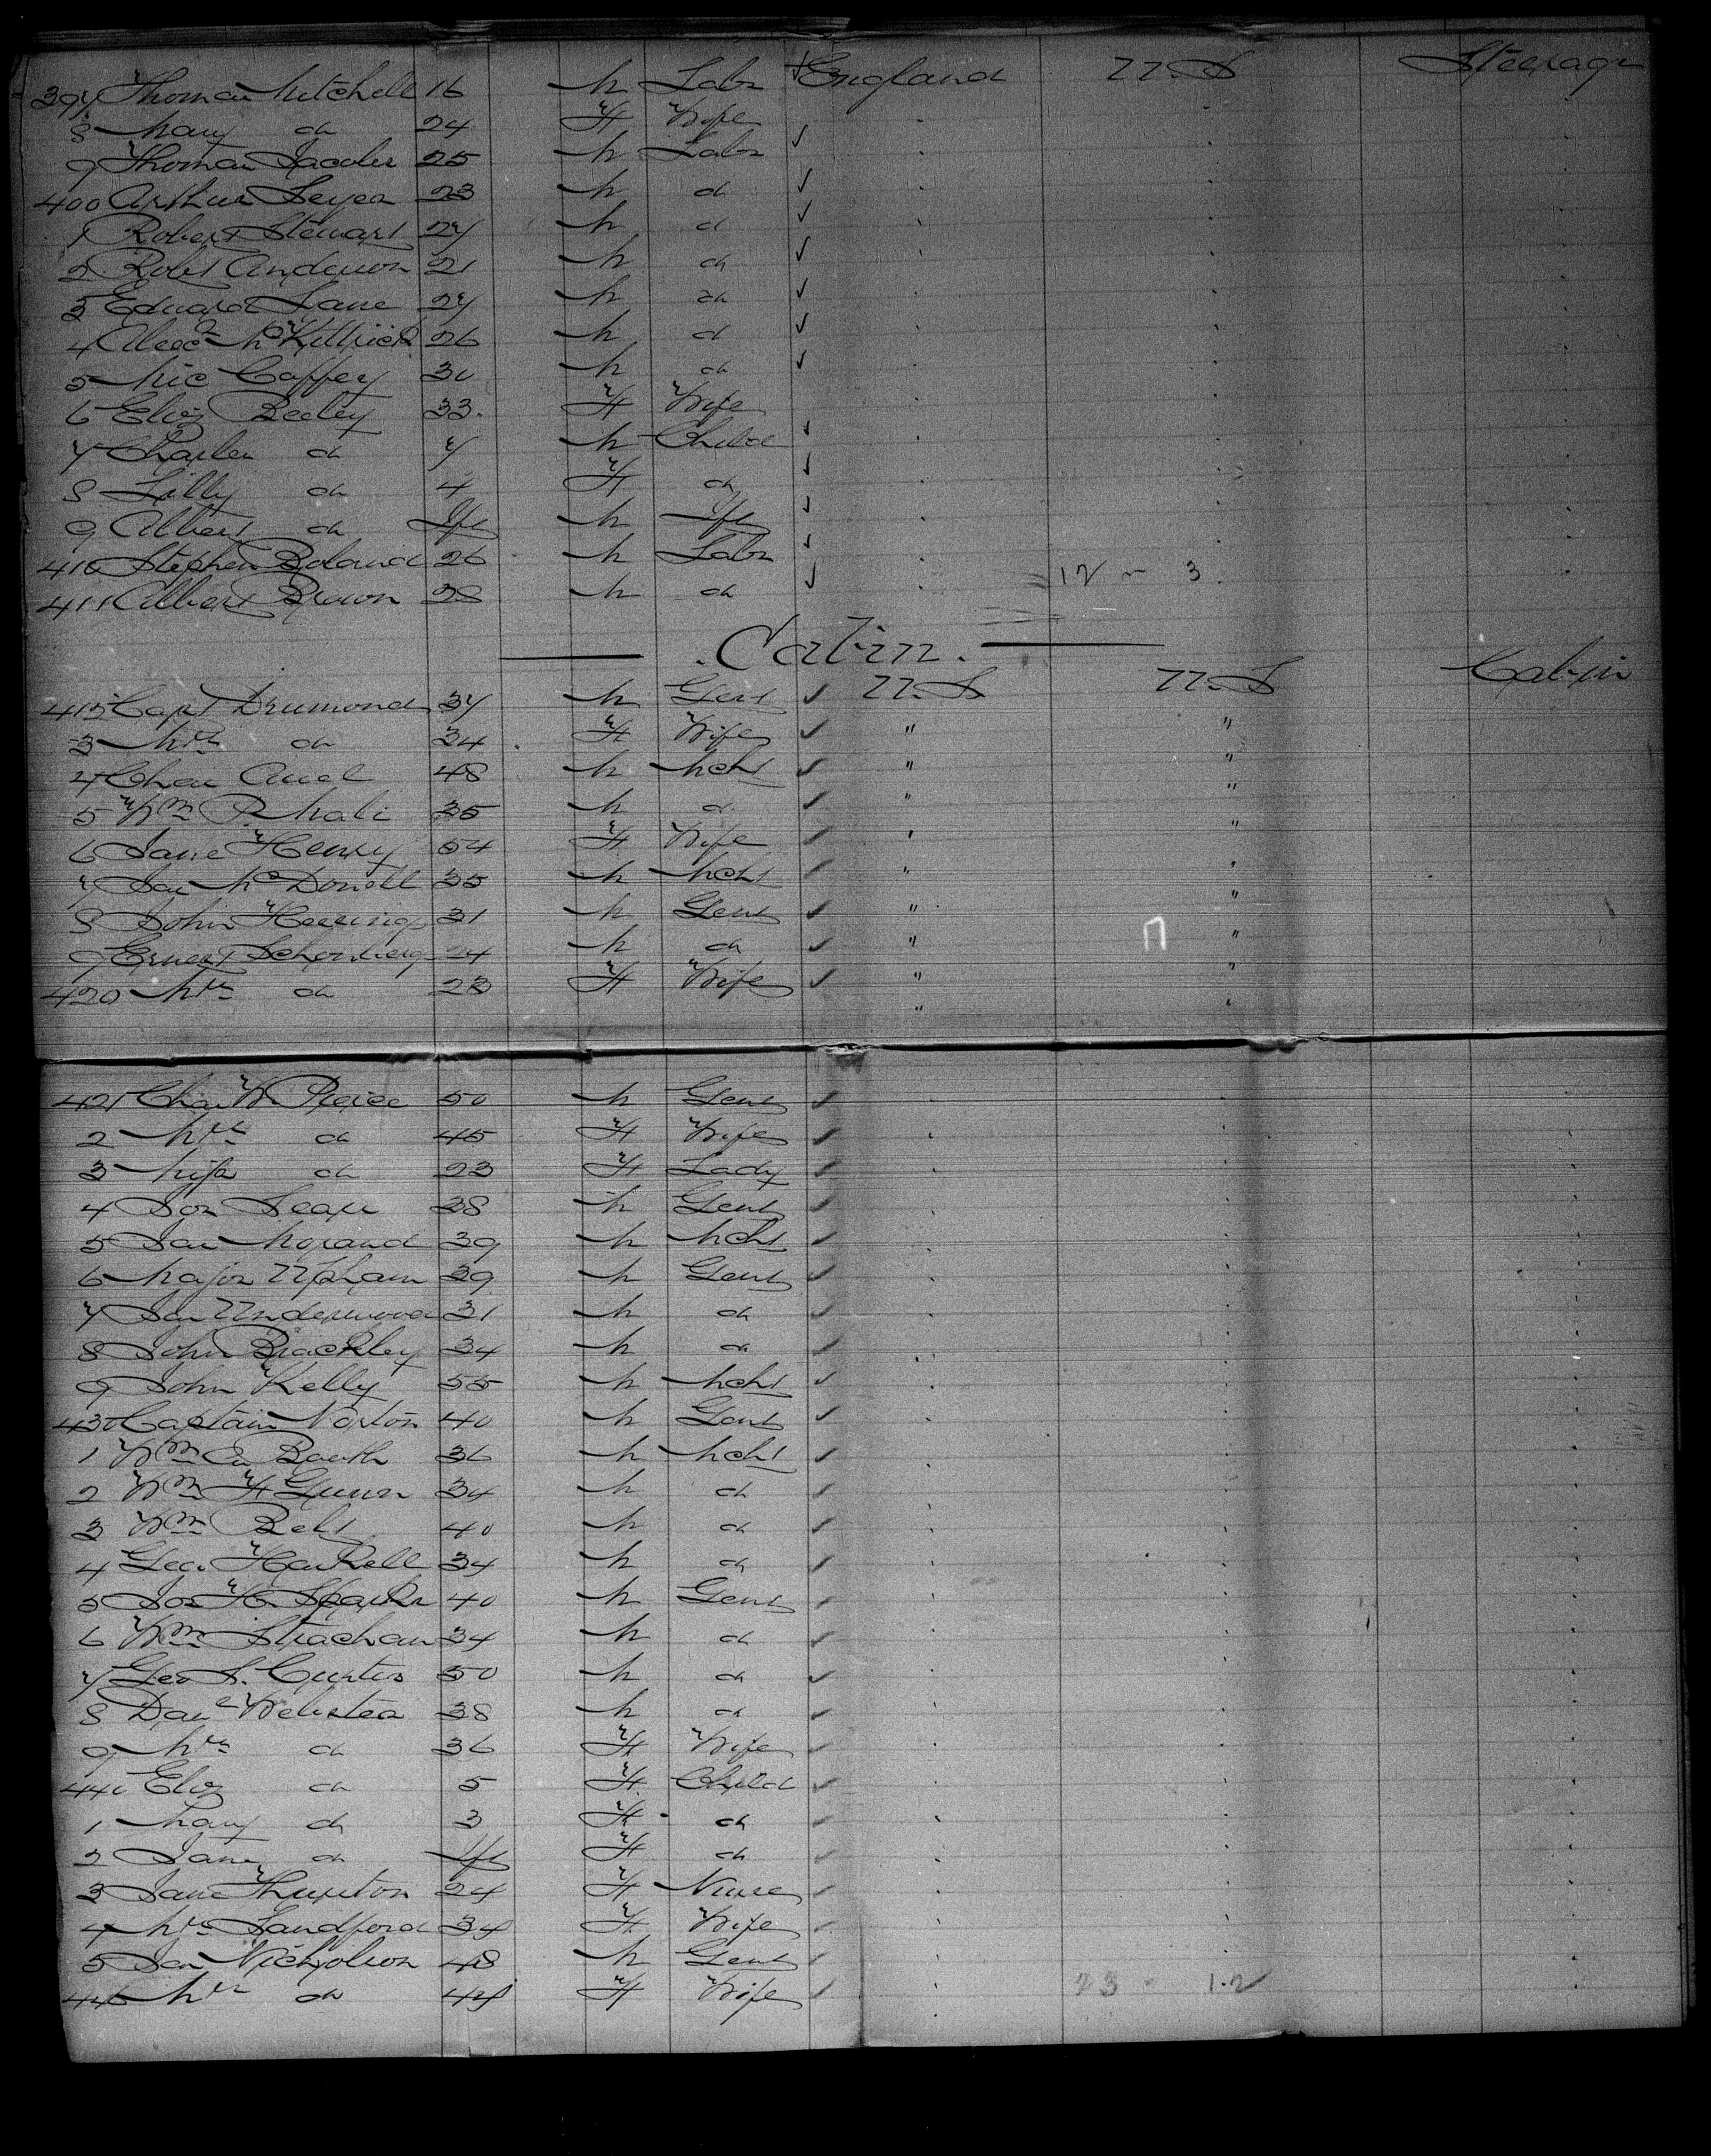 397 Thomas Mitchell 16 M Labr England U.S Steerage
8 Mary do 24 F Wife
9 Thomas Jacobs 25 M Labr
400 Arthur 23 M do
1 Robert Stewart 27 M do
2 Robt Anderson 21 M do
3 Edward Lane 27 M do
4 Alexr McKittrick 26 M do
5 Mic Caffery 30 M do
6 Eliz Beeley 33 F Wife
7 Charles do 7 M Child
8 Lilly do 4 F do
9 Albert do Inft M Inft
410 Stephen Boland 26 M Labr
411 Albert Brown 28 M do 12 - 3
Cabin.
412 Capt Drumond 37 M Gent U.S U.S Cabin
3 Mrs do 34 F Wife " "
4 Chas 48 M Mcht " "
5 Wm P. 35 M do " "
6 Jane Henry 54 F Wife " "
7 Jas McDonell 35 M Mcht " "
8 John 31 M Gent " "
9 Ernest Schonberg 24 M do " "
420 Mrs do 23 F Wife " "
421 Chas W Pierce 50 M Gent
2 Mrs do 45 F Wife
3 Miss do 23 F Lady
4 Jos 38 M Gent
5 Jas Morand 39 M Mcht
6 Major Upham 39 M Gent
7 Jas Underwood 31 M do
8 John Brackley 34 M do
9 John Kelly 55 M Mcht
430 Captain Norton 40 M Gent
1 Wm E Booth 36 M Mcht
2 Wm F Gunn 34 M do
3 Wm 40 M do
4 Geo. Haskell 34 M do
5 Jos H Sparks 40 M Gent
6 Wm Strachan 34 M do
7 Geo S. Curtis 50 M do
8 Danl Webster 38 M do
9 Mrs do 36 F Wife
440 Eliz do 5 F Child
1 Mary do 3 F do
2 Jane do Inft F do
3 Jane Thurston 24 F Nurse
4 Mrs Sandford 34 F Wife
5 Jas Nicholson 48 M Gent
446 Mrs do 44 F Wife 23 - 12